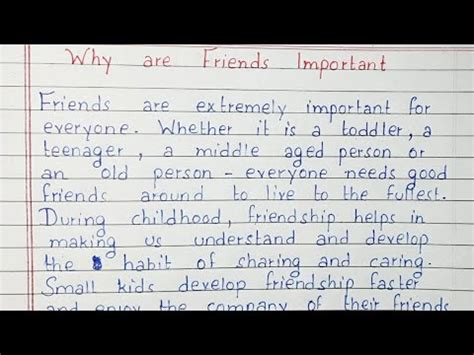 Why are Friends Important
Friends are extremely important for
everyone. Whether it is a toddler, a
teenager, a middle aged person or
an old person - everyone needs good
friends around to live to the fullest.
During childhood, friendship helps in
making us understand and develop
the habit of sharing and caring.
Small kids develop friendship faster
and enjoy the company of their friends